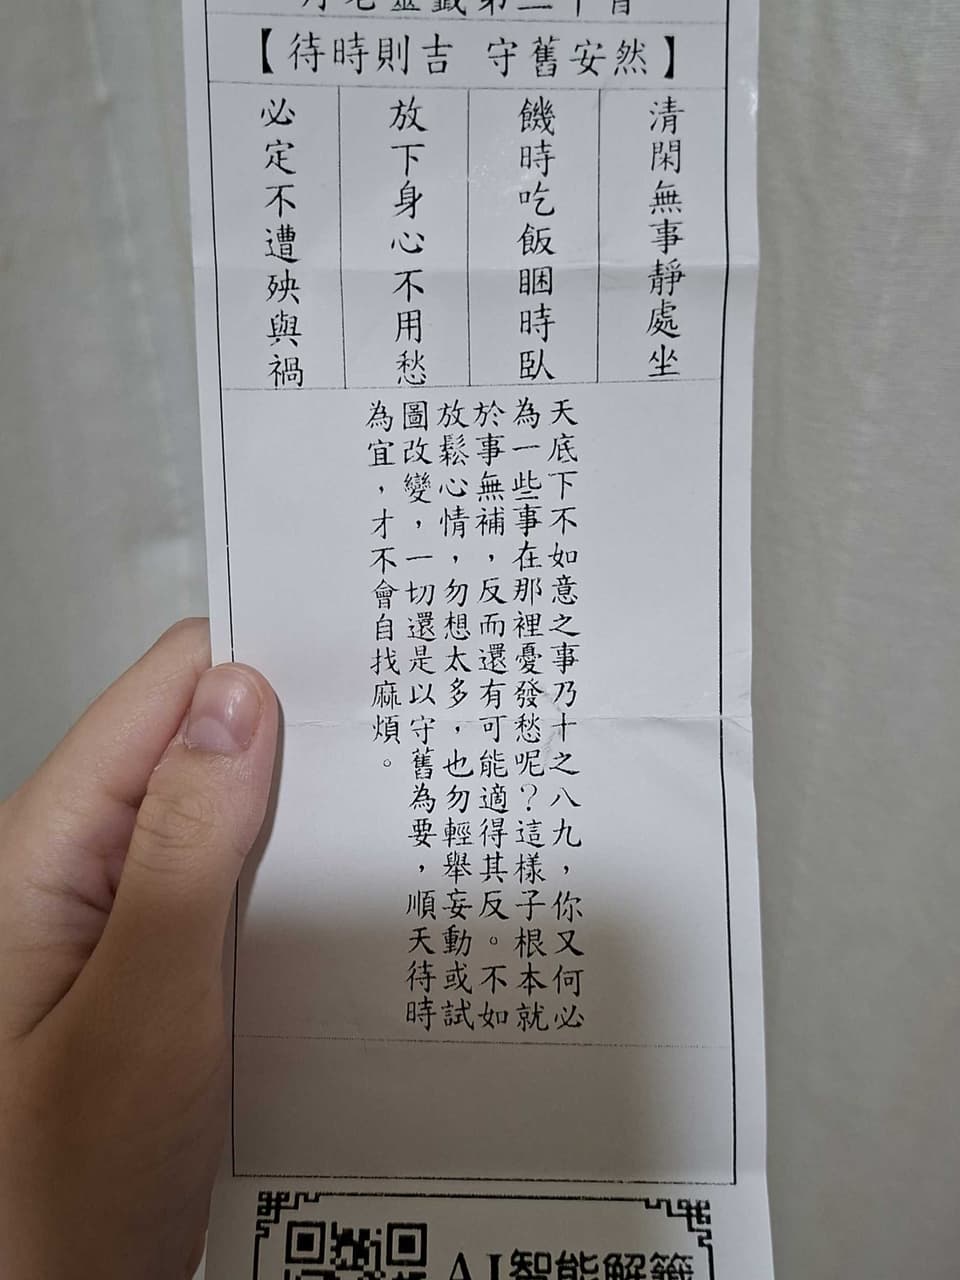 月老靈籤第二十首
【待時則吉 守舊安然】
清閑無事靜處坐
饑時吃飯睏時臥
放下身心不用愁
必定不遭殃與禍
天底下不如意之事乃十之八九，你又何必
為一些事在那裡憂發愁呢？這樣子根本就
於事無補，反而還有可能適得其反。不如
放鬆心情，勿想太多，也勿輕舉妄動或試
圖改變，一切還是以守舊為要，順天待時
為宜，才不會自找麻煩。
AI智能解籤